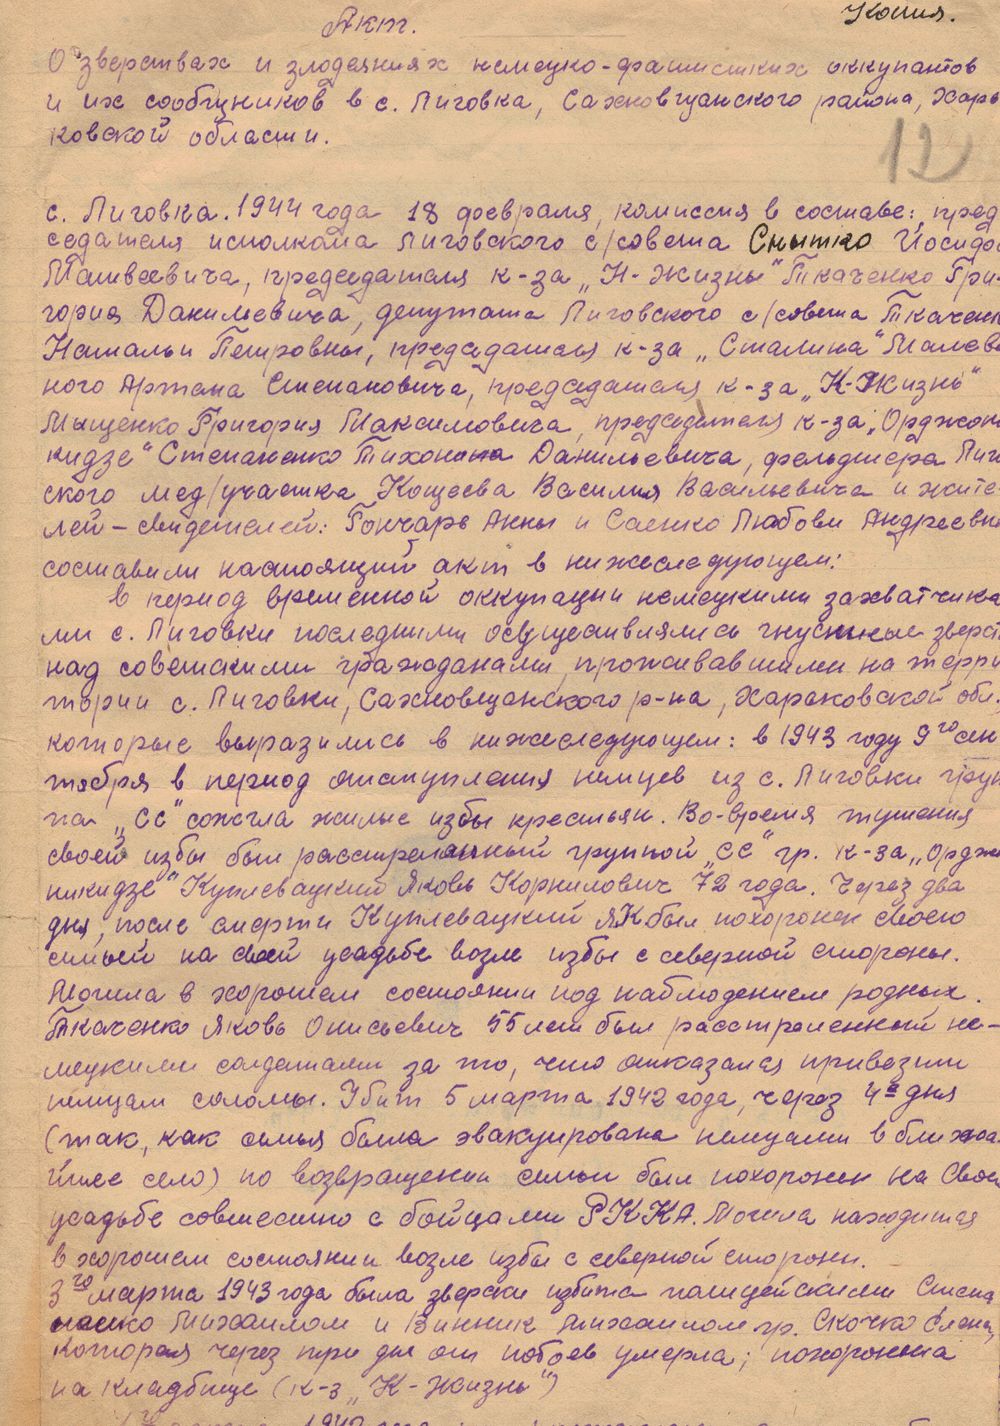 Копия.
Акт.
О зверствах и злодеяниях немецко-фашистких оккупантов
и их сообщников в с. Лиговка, Сахновщанского района, Харь
ковской области.
12
с. Лиговка. 1944 года 18 февраля, комиссия в составе: пред
седателя исполкома Лиговского с/совета Снытко Иосифо
Матвеевича, председателя к-за „Н-Жизнь" Ткаченко Гри-
гория Данильевича, депутата Лиговского с/совета Ткаченк
Натальи Петровны, председателя к-за „Сталина" Малева
ного Артема Степановича, председателя к-за „К-Жизнь"
Мищенко Григория Максимовича, председателя к-за „Орджон
кидзе" Степаненко Тихона Данильевича, фельдшера Лиго
ского мед/участка Кощеева Василия Васильевича и жите-
лей-свидетелей: Гончарь Анны и Саенко Любови Андреевны
составили настоящий акт в нижеследующем:
в период временной оккупации немецкими захватчика
ми с. Лиговки последними осуществлялись гнусные зверст
над советскими гражданами, проживавшими на терри
тории с. Лиговки, Сахновщанского р-на, Харьковской обл.
которые выразились в нижеследующем: в 1943 году 9го сен
тября в период отступления немцев из с. Лиговки груп
па „СС" сожгла жилые избы крестьян. Во-время тушения
своей избы был расстрелянный группой „СС" гр. к-за „Орджо
никидзе" Куплевацкий Яковь Корнилович 72 года. Через два
дня, после смерти Куплевацкий ЯК был похоронен своею
семьей на своей усадьбе возле избы с северной стороны.
Могила в хорошем состоянии под наблюдением родных.
Ткаченко Яковь Онисьевич 55 лет был расстреленный не-
мецкими солдатами за то, что отказался привезти
немцам соломы. Убит 5 марта 1942 года, через 4е дня
(так, как семья была эвакуирована немцами в ближа
йшее село) по возвращении семьи был похоронен на своей
усадьбе совместно с бойцами РККА. Могила находится
в хорошем состоянии возле избы с северной сторони.
3го марта 1943 года была зверски избита полицейскими Степа
ненко Михаилом и Винник Михаилом гр. Скочко Елена,
которая через три дня от побоев умерла; похоронена
на кладбище (к-з „К-Жизнь")
1942 года